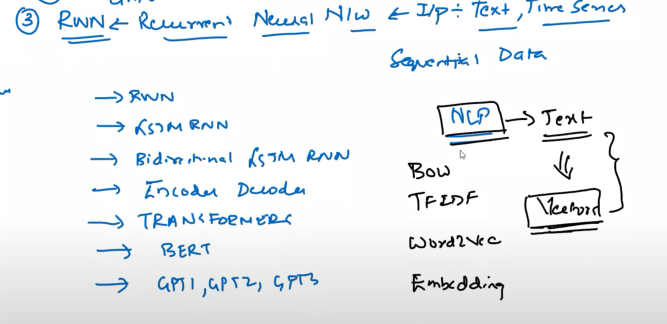 ③ RNN ← Recurrent Neural N/w ← I/p ÷ Text, Time Series
Sequential Data
→ RNN
→ LSTM RNN
→ Bidirectional LSTM RNN
→ Encoder Decoder
→ TRANSFORMERS
→ BERT
→ GPT1, GPT2, GPT3
NLP → Text
BOW
TFIDF
Word2Vec
Embedding
Vectors